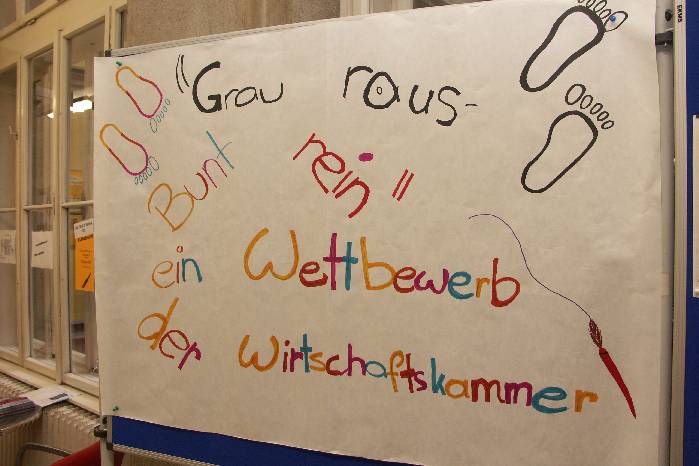 "Grau raus-
Bunt rein"
ein Wettbewerb
der Wirtschaftskammer